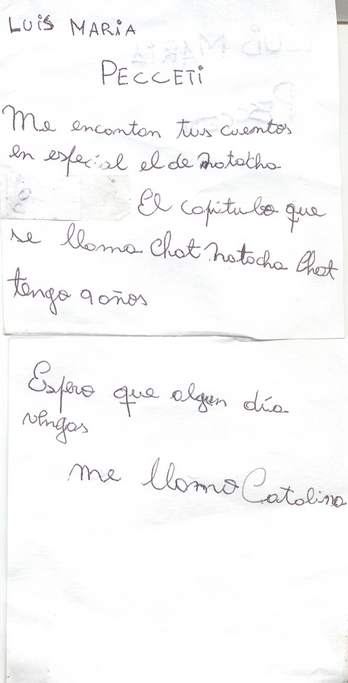 LUIS MARIA
PECCETI
Me encontan tus cuentos
en especial el de Natacha
El capitulo que
se llama Chat Natacha Chat
tengo 9 años
Espero que algun día
vengas
me llamo Catalina